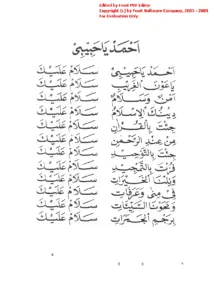 Edited by Foxit PDF Editor
Copyright (c) by Foxit Software Company, 2003 - 2009
For Evaluation Only.
اَحْمَدْ يَا حَبِيْبِيْ
اَحْمَدْ يَا حَبِيْبِيْ سَلَامٌ عَلَيْكَ
يَا عَوْنَ الْغَرِيْبِ سَلَامٌ عَلَيْكَ
اَمْنٌ وَسَلَامٌ سَلَامٌ عَلَيْكَ
دِيْنُكَ الْاِسْلَامُ سَلَامٌ عَلَيْكَ
جِئْتَ بِالْقُرْآنِ سَلَامٌ عَلَيْكَ
مِنْ عِنْدِ الرَّحْمٰنِ سَلَامٌ عَلَيْكَ
جِئْتَ بِالتَّوْحِيْدِ سَلَامٌ عَلَيْكَ
فُزْتَ بِالتَّوْحِيْدِ سَلَامٌ عَلَيْكَ
وَنِلْتَ الْخَيْرَاتِ سَلَامٌ عَلَيْكَ
فِيْ مِنٰى وَعَرَفَاتِ سَلَامٌ عَلَيْكَ
وَتَمْحُو السَّيِّئَاتِ سَلَامٌ عَلَيْكَ
بِرَجْمِ الْجَمَرَاتِ سَلَامٌ عَلَيْكَ